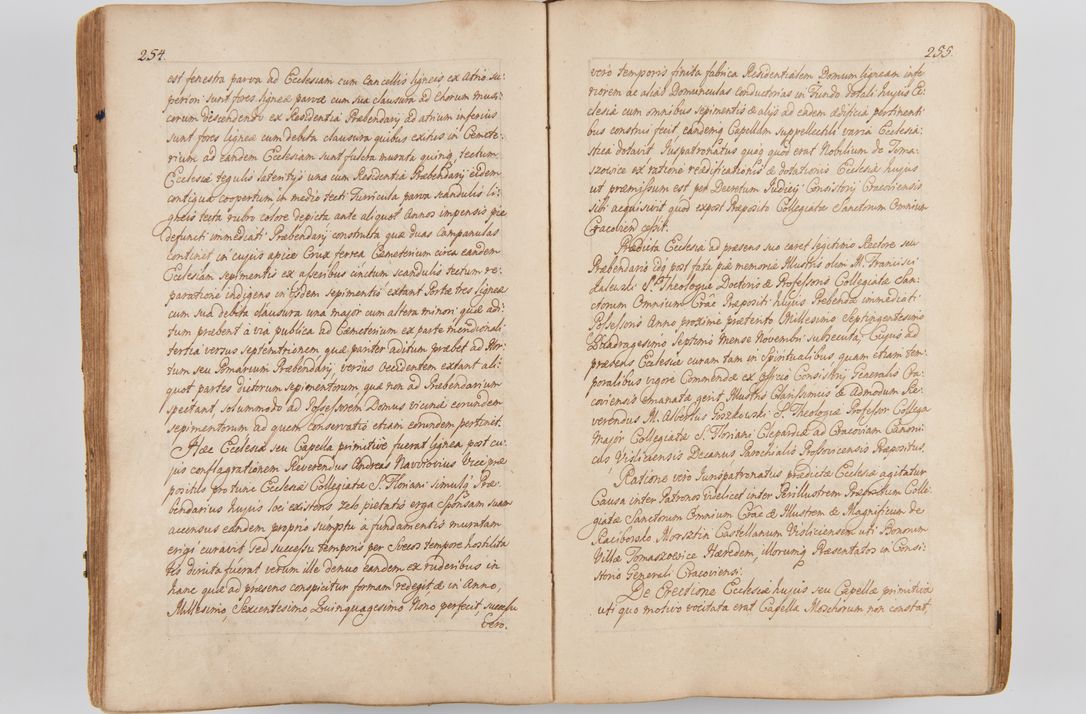 254.
est fenestra parva ad Ecclesiam cum Cancellis ligneis ex Atrio su-
periori sunt fores ligneæ parvæ cum sua clausura ad Chorum musi-
corum descendendo ex Residentia Præbendarij ad atrium inferius
sunt fores ligneæ cum debita clausura quibus exitus in Cæmete-
rium ad eandem Ecclesiam sunt fulcra murata quinq, tectum
Ecclesiæ tegulis lateritijs una cum Residentia Præbendarij eidem
contigua coopertum in medio tecti Turricula parva scandulis li-
gneis tecta rubro colore depicta ante aliquot Annos impensis piè
defuncti immediati Præbendarij constructa quæ duas Campanulas
continet in cujus apice Crux ferrea Cæmeterium circa eandem
Ecclesiam sepimentis ex asseribus cinctum scandulis tectum re-
paratione indigens in ijsdem sepimentis extant Portæ tres ligneæ
cum sua debita clausura una major cum altera minori quæ adi-
tum præbent à via publica ad Cæmeterium ex parte meridionali
tertia versus septemtrionem quæ pariter aditum præbet ad Hor-
tum seu Pomarium Præbendarij versus Occidentem extant ali-
quot partes dictorum sepimentorum quæ non ad Præbendarium
spectant solummodo ad Possessorem Domus vicinæ eorundem
sepimentorum ad quem conservatio etiam eorundem pertinet.
Hæc Ecclesia seu Capella primitive fuerat lignea post cu-
jus conflagrationem Reverendus Andreas Navitorius Vice præ
positus pro tunc Ecclesiæ Collegiatæ S. Floriani simulq, Præ-
bendarius hujus loci existens zelo pietatis erga Sponsam suam
accensus eandem proprio sumptu à fundamentis muratam
erigi curavit sed successu temporis per Suecos tempore hostilita
tis diruta fuerat verum ille denuo eandem ex ruderibus in
hanc quæ ad præsens conspicitur formam redegit, & in Anno,
Millesimo, Sexcentesimo, Quinquagesimo Nono perfecit, successu
Vero.
255
vero temporis finita fabrica Residentialem Domum ligneam infe
riorem ac alias Domunculas conductorias in Fundo dotali hujus Ec-
clesiæ cum omnibus sepimentis & alijs ad eadem ædificia pertinenti
bus construi fecit eandemq Capellam suppellectili varia Ecclesia-
stica dotavit Juspatronatus quoq quod erat Nobilium de Toma-
szowice ex ratione reædificationis & dotationis Ecclesiæ hujus
ut præmissum est per Decretum Iudicij Consistorij Cracoviensis
sibi acquisivit quod expost Præposito Collegiatæ Sanctorum Omnium
Cracovien cessit.
Prædicta Ecclesia ad præsens suo caret legitimo Rectore seu
Præbendario idq post fata piæ memoriæ Illustris olim M. Francisci
S. Theologiæ Doctoris & Professoris Collegiatæ San-
ctorum Omnium Crac Præpositi hujus Præbendæ immediati
Possessoris Anno proxime præterito Millesimo Septingentesimo
Quadragesimo Septimo Mense Novembri subsecuta, Cujus ad
præsens Ecclesiæ curam tam in Spiritualibus quam etiam tem-
poralibus vigore Commendæ ex officio Consistorij Generalis Cra-
coviensis emanatæ gerit Illustris Clarissimus & Admodum Re-
verendus M. Albertus S. Theologiæ Professor Collega
Major Collegiatæ S. Floriani Clepardiæ ad Cracoviam Canoni-
cus Visliciensis Decanus Paroechialis Præpositus.
Ratione vero Jurispatronatus prædictæ Ecclesiæ agitatur
Causa inter Patronos videlicet inter Perillustrem Præpositum Colle-
giatæ Sanctorum Omnium Crac & Illustrem & Magnificum de
Raciborsko Morsztin Castellanum Visliciensem uti Bonorum
Villæ Tomaszowice Hæredem, illorumq Præsentatos in Consi-
storio Generali Cracoviensi.
De Erectione Ecclesiæ hujus seu Capellæ primitiva
uti quo motivo vocitata erat Capella Moschorum non constat,